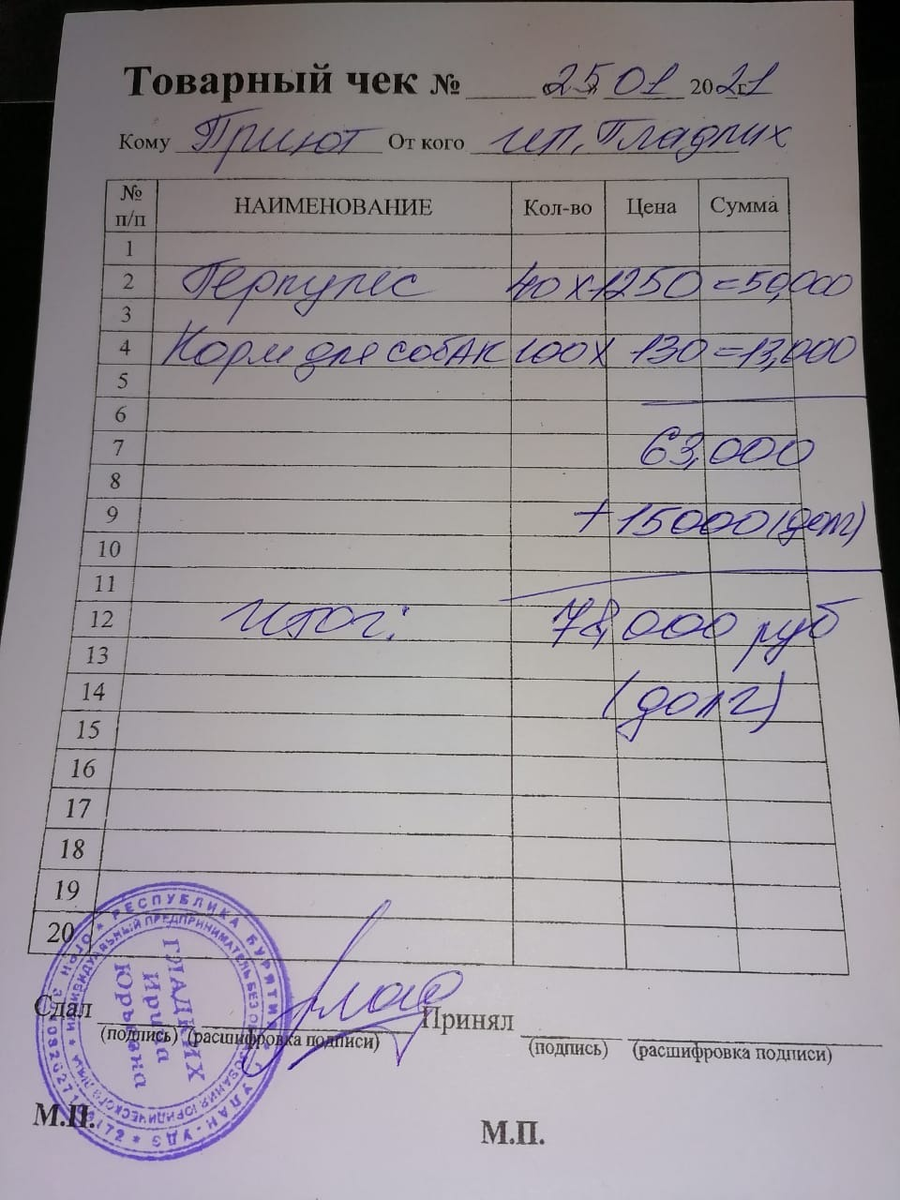 Товарный чек № 25 01 2021 г.
Кому Приют От кого ип. Гладких
№ п/п НАИМЕНОВАНИЕ Кол-во Цена Сумма
1
2 Геркулес 40 х 1250 = 50,000
3
4 Корм для собак 100 х 130 = 13,000
5
6
7 63,000
8
9 + 15000 (долг)
10
11
12 Итог: 78,000 руб
13
14 (долг)
15
16
17
18
19
20
Сдал Принял
(подпись) (расшифровка подписи) (подпись) (расшифровка подписи)
М.П. М.П.
РЕСПУБЛИКА БУРЯТИЯ * УЛАН-УДЭ
ИНДИВИДУАЛЬНЫЙ ПРЕДПРИНИМАТЕЛЬ БЕЗ ОБРАЗОВАНИЯ ЮРИДИЧЕСКОГО ЛИЦА
ГЛАДКИХ
Ирина
Юрьевна